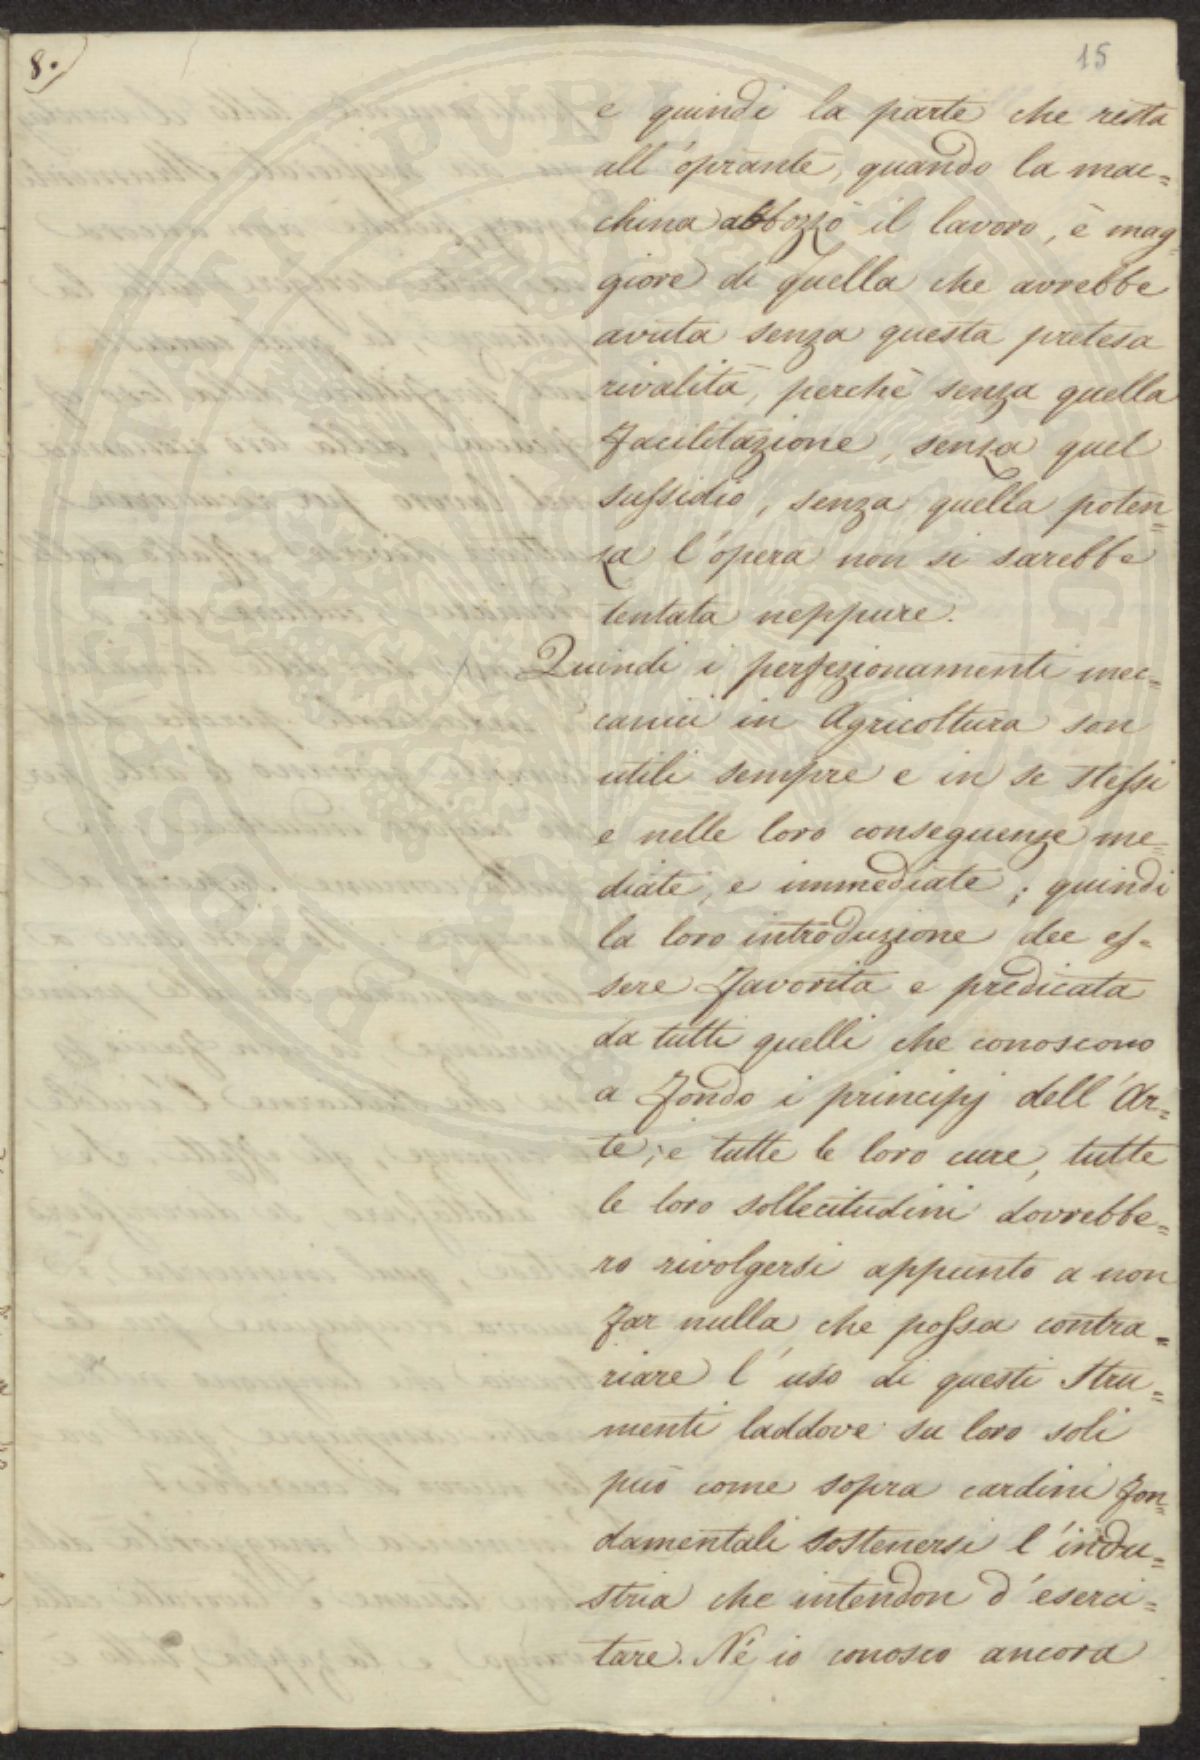 8.
15
e quindi la parte che resta
all'oprante, quando la mac=
china abbozzò il lavoro, è mag=
giore di quella che avrebbe
avuta senza questa pretesa
rivalità, perchè senza quella
facilitazione, senza quel
sussidio, senza quella poten=
za l'opera non si sarebbe
tentata neppure.
Quindi i perfezionamenti mec=
canici in Agricoltura son
utili sempre e in se stessi
e nelle loro conseguenze me=
diate, e immediate; quindi
la loro introduzione dee es=
sere favorita e predicata
da tutti quelli che conoscono
a fondo i principj dell'Ar=
te; e tutte le loro cure, tutte
le loro sollecitudini dovrebbe=
ro rivolgersi appunto a non
far nulla che possa contra=
riare l'uso di questi stru=
menti laddove su loro soli
può come sopra cardini fon=
damentali sostenersi l'indu=
stria che intendon d'eserci=
tare. Nè io conosco ancora